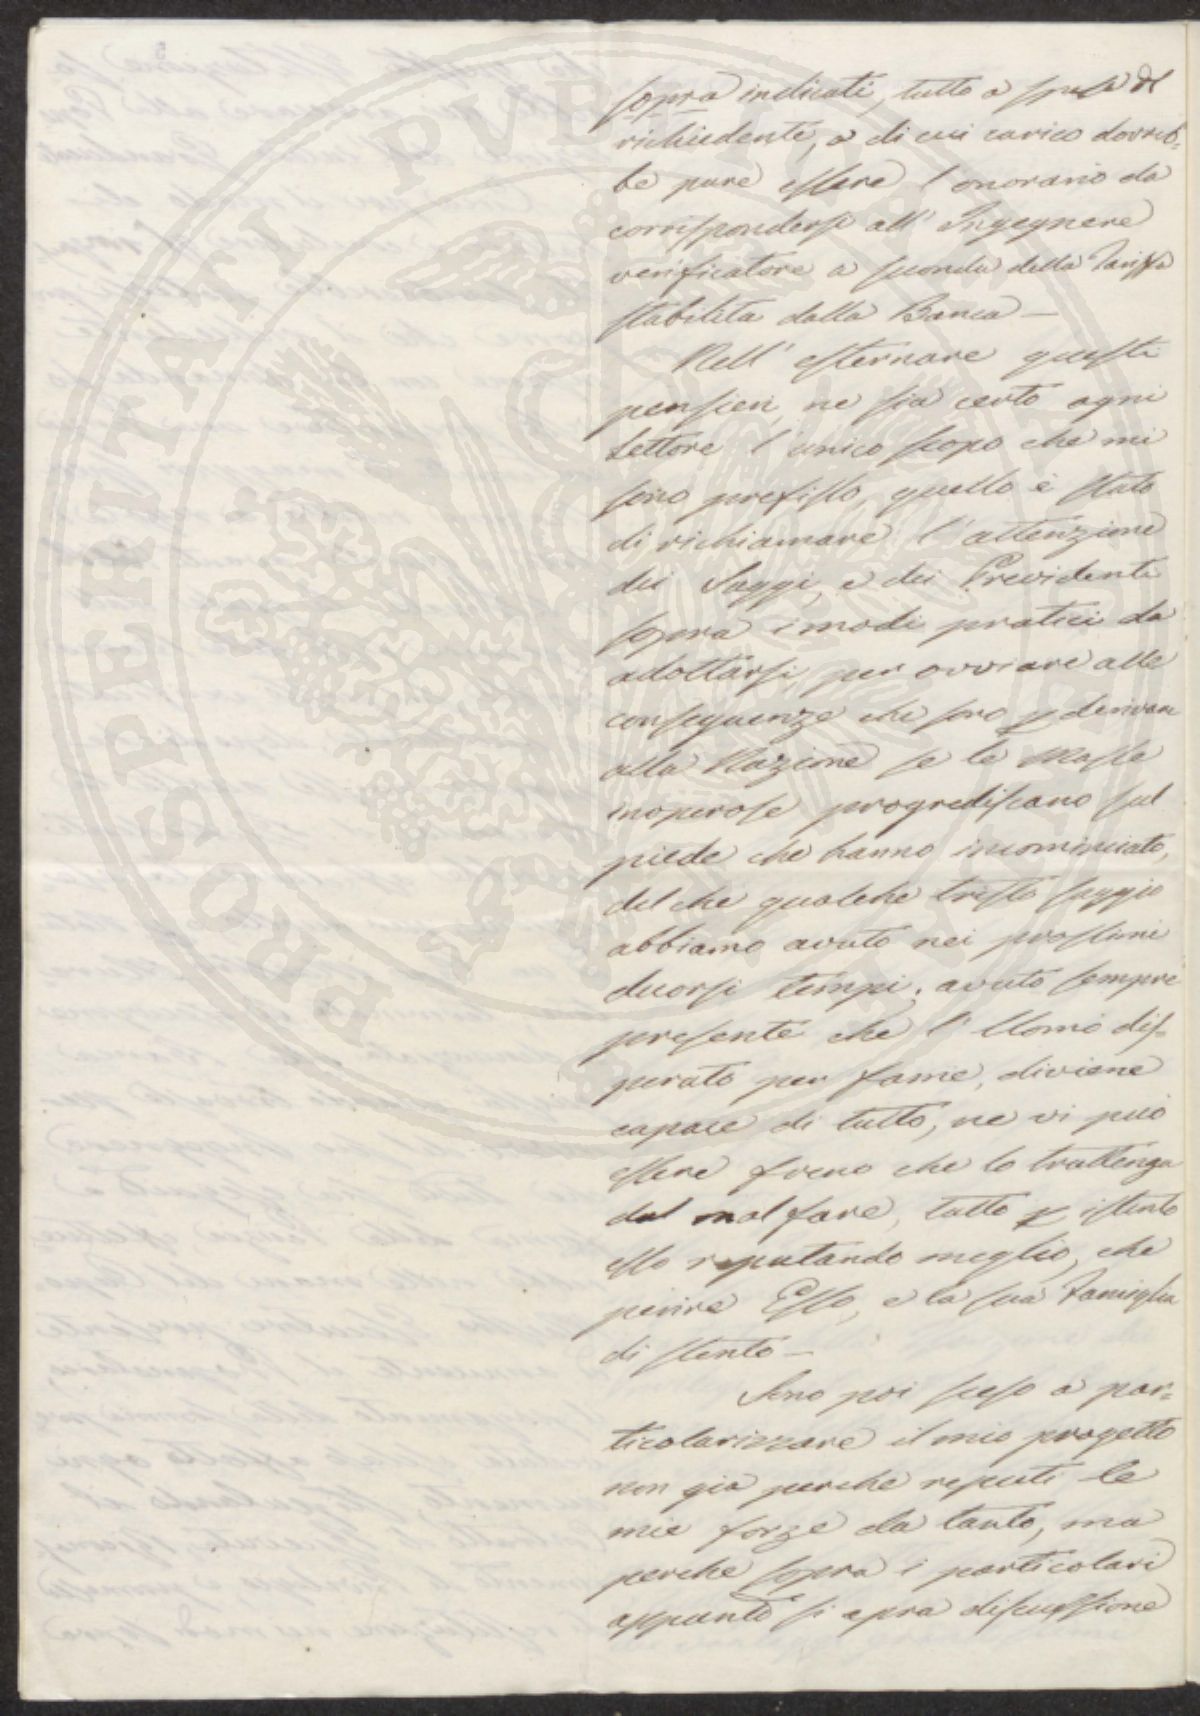 sopra indicati, tutto a spese del
richiedente, a di cui carico dovreb=
be pure essere l'onorario da
corrispondersi all'Ingegnere
verificatore a seconda della Tariffa
stabilita dalla Banca —
Nell'esternare questi
pensieri, ne sia certo ogni
Lettore l'unico scopo che mi
sono prefisso, quello è stato
di richiamare l'attenzione
dei Saggi, e dei Previdenti
sopra i modi pratici da
adottarsi, per ovviare alle
conseguenze che sono p derivare
alla Nazione se le Masse
inoperose progrediscano sul
piede che hanno incominciato,
del che qualche tristo saggio
abbiamo avuto nei prossimi
decorsi tempi; avuto sempre
presente che l'Uomo dis=
perato per fame, diviene
capace di tutto, ne vi può
essere freno che lo trattenga
dal mal fare, tutto p istinto
esso reputando meglio, che
perire Esso, e la sua Famiglia
di stento —
Sono poi sceso a par=
ticolarizzare il mio progetto
non gia perche reputi le
mie forze da tanto, ma
perche sopra i particolari
appunto si apra discussione
PROSPERITATI PVBLICAE